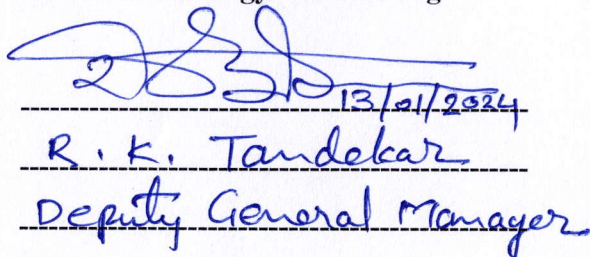 13/01/2024
R. K. Tandekar
Deputy General Manager